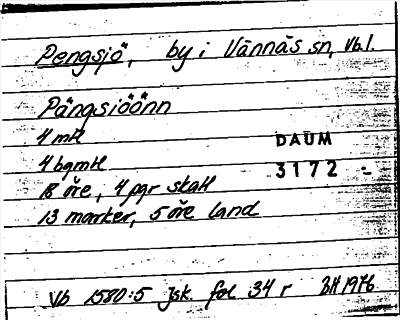 Pengsjö, by i Vännäs sn, Vbl.
Pängsiöönn
4 mtl
DAUM
4 bgmtl
3172
18 öre, 4 pgr skatt
13 marker, 5 öre land
Vb 1580:5 Jsk. fol 34 r BH 1976